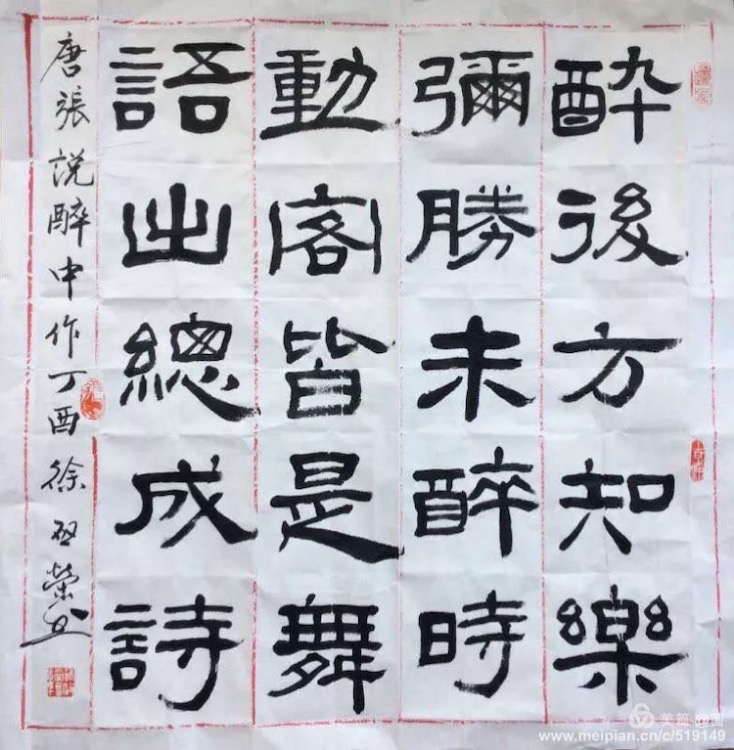 酔後方知樂
彌勝未醉時
動容皆是舞
語出總成詩
唐張説醉中作丁酉徐榮书
美篇
www.meipian.cn/c/519149